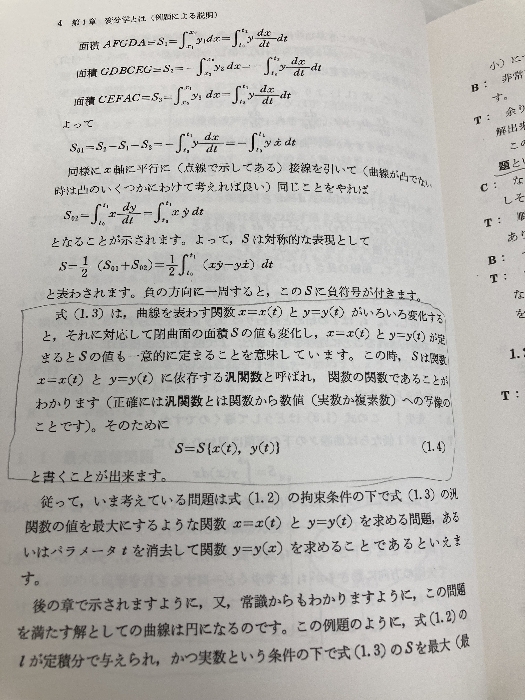 4 第1章 変分学とは（例題による説明）
面積 AFGDA=S₁=∫y₁dx=∫y dx/dt dt
面積 GDBCEG=S₂=-∫y₂dx=-∫y dx/dt dt
面積 CEFAC=S₃=∫y₃dx=∫y dx/dt dt
よって
S₀₁=S₂-S₁-S₃=-∫y dx/dt dt=-∫y ẋ dt
同様に x 軸に平行に（点線で示してある）接線を引いて（曲線が凸でない
時は凸のいくつかにわけて考えれば良い）同じことをやれば
S₀₂=∫x dy/dt=∫x ẏ dt
となることが示されます。よって，S は対称的な表現として
S=1/2 (S₀₁+S₀₂)=1/2∫(xẏ-yẋ) dt
と表わされます。負の方向に一周すると，この S に負符号が付きます。
式 (1.3) は，曲線を表わす関数 x=x(t) と y=y(t) がいろいろ変化する
と，それに対応して閉曲面の面積 S の値も変化し，x=x(t) と y=y(t) が定
まると S の値も一意的に定まることを意味しています。この時，S は関数
x=x(t) と y=y(t) に依存する汎関数と呼ばれ，関数の関数であることが
わかります（正確には汎関数とは関数から数値（実数か複素数）への写像の
ことです）。そのために
S=S{x(t), y(t)} (1.4)
と書くことが出来ます。
従って，いま考えている問題は式 (1.2) の拘束条件の下で式 (1.3) の汎
関数の値を最大にするような関数 x=x(t) と y=y(t) を求める問題，ある
いはパラメータ t を消去して関数 y=y(x) を求めることであるといえま
す。
後の章で示されますように，又，常識からもわかりますように，この問題
を満たす解としての曲線は円になるのです。この例題のように，式 (1.2) の
l が定積分で与えられ，かつ実数という条件の下で式 (1.3) の S を最大（最
小）に
B： 非常
す。
T： 余り
解出来
この
題と
C： な
しそ
T：
あり
B：
T：
な
を
1.
T：